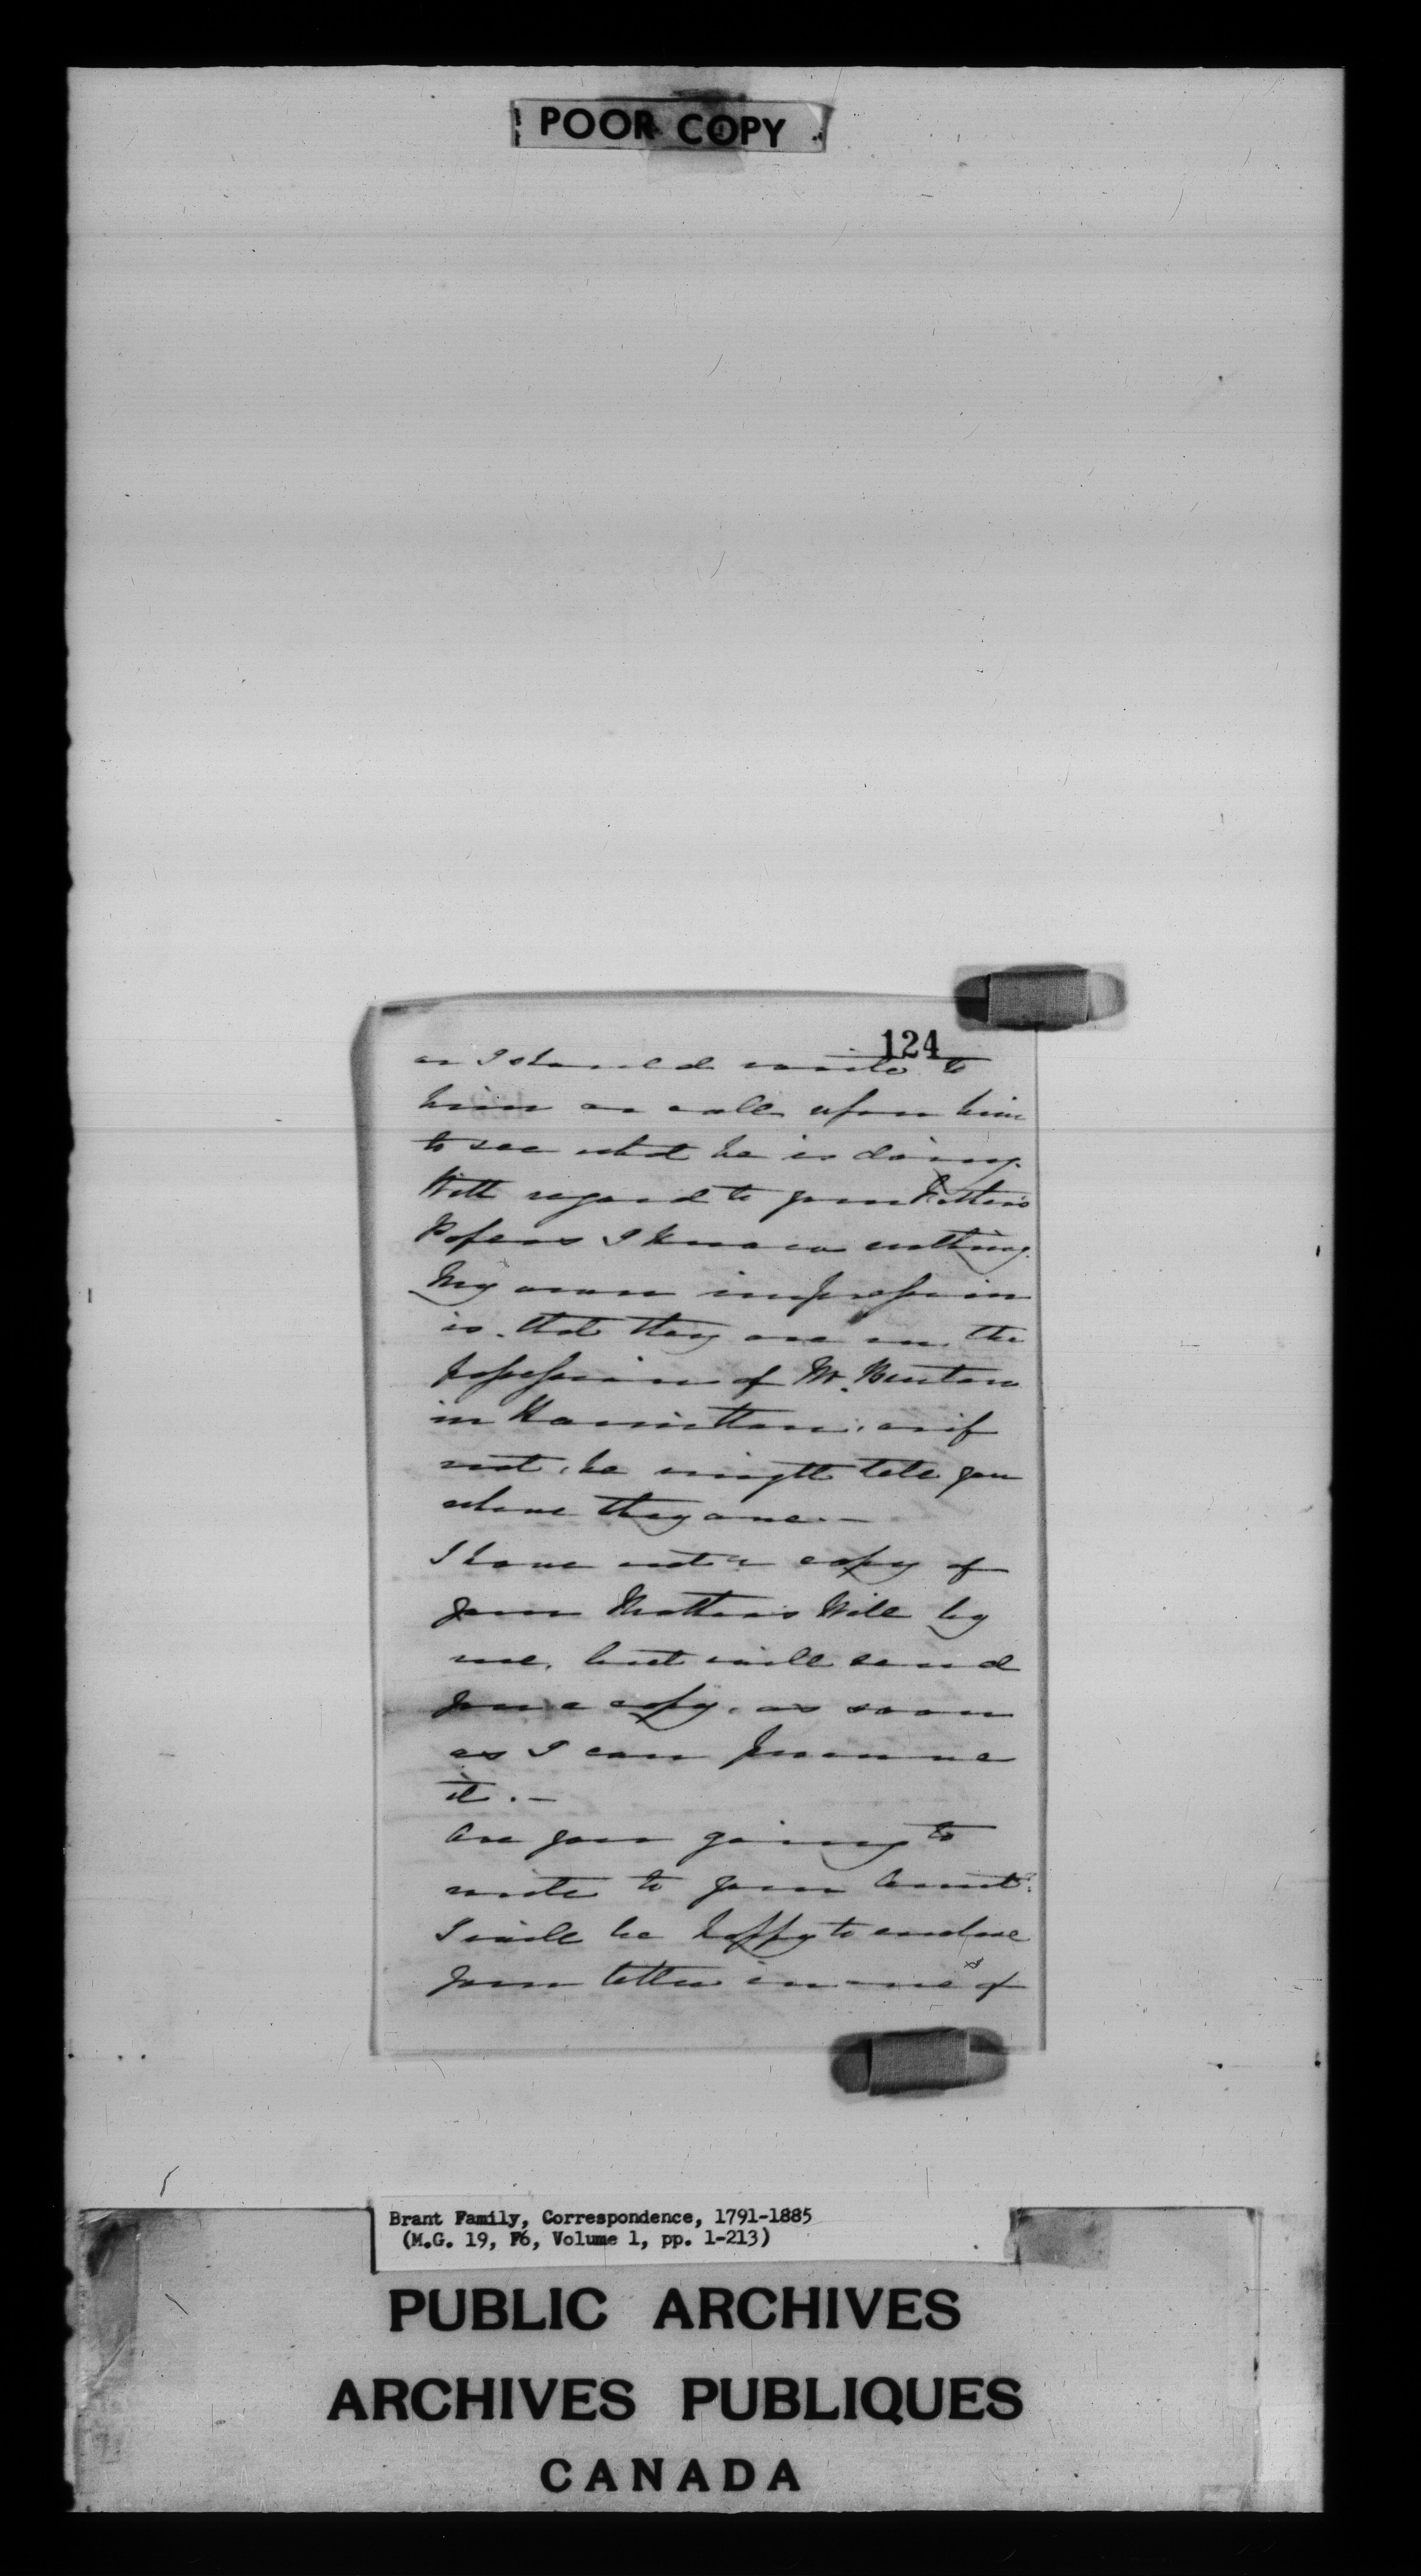 POOR COPY
124
or I should write to
him or call upon him
to see what he is doing.
With regard to your Father's
Papers I know nothing.
My own impression
is that they are in the
possession of Mr.
in Hamilton: or if
not, he might tell you
where they are. —
I have not a copy of
your Mother's Will by
me, but will send
you a copy, as soon
as I can procure
it. —
Are you going to
write to your Aunt?
I will be happy to enclose
your letter in one of
Brant Family, Correspondence, 1791-1885
(M.G. 19, F6, Volume 1, pp. 1-213)
PUBLIC ARCHIVES
ARCHIVES PUBLIQUES
CANADA